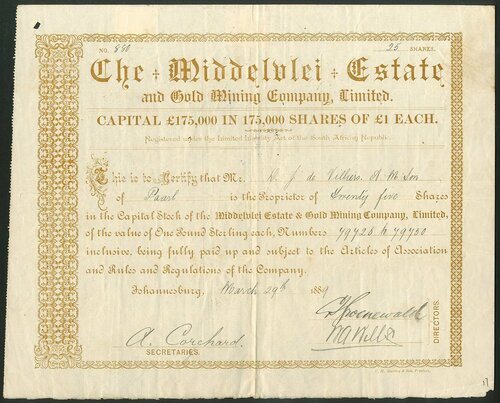 NO. 880 25 SHARES.
The Middelvlei Estate
and Gold Mining Company, Limited.
CAPITAL £175,000 IN 175,000 SHARES OF £1 EACH.
Registered under the Limited Liability Act of the South African Republic.
This is to Certify that Mr. J de Villiers
of Paarl is the Proprietor of Twenty five Shares
in the Capital Stock of the Middelvlei Estate & Gold Mining Company, Limited,
of the value of One Pound Sterling each, Numbers 79726 to 79750
inclusive, being fully paid up and subject to the Articles of Association
and Rules and Regulations of the Company.
Johannesburg, March 29th 1889
A. Corchard.
SECRETARIES.
DIRECTORS.